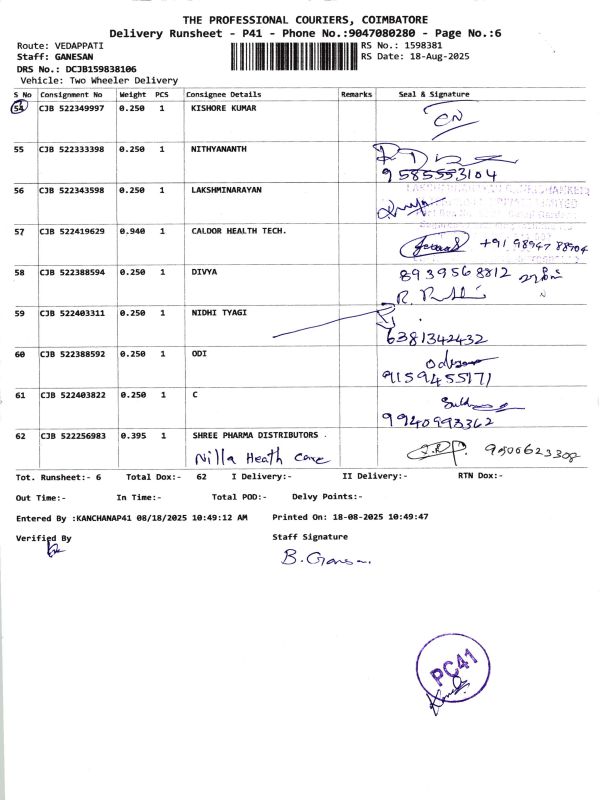 THE PROFESSIONAL COURIERS, COIMBATORE
Delivery Runsheet - P41 - Phone No.:9047080280 - Page No.:6
Route: VEDAPPATI
RS No.: 1598381
Staff: GANESAN
RS Date: 18-Aug-2025
DRS No.: DCJB159838106
Vehicle: Two Wheeler Delivery
S No Consignment No Weight PCS Consignee Details Remarks Seal & Signature
54 CJB 522349997 0.250 1 KISHORE KUMAR
55 CJB 522333398 0.250 1 NITHYANANTH
9585553104
56 CJB 522343598 0.250 1 LAKSHMINARAYAN
57 CJB 522419629 0.940 1 CALDOR HEALTH TECH. +91 98947 88904
58 CJB 522388594 0.250 1 DIVYA 8939568812
59 CJB 522403311 0.250 1 NIDHI TYAGI
6381342432
60 CJB 522388592 0.250 1 ODI
9159455171
61 CJB 522403822 0.250 1 C
9940993362
62 CJB 522256983 0.395 1 SHREE PHARMA DISTRIBUTORS . 9500623308
Nilla Heath care
Tot. Runsheet:- 6 Total Dox:- 62 I Delivery:- II Delivery:- RTN Dox:-
Out Time:- In Time:- Total POD:- Delvy Points:-
Entered By :KANCHANAP41 08/18/2025 10:49:12 AM Printed On: 18-08-2025 10:49:47
Verified By Staff Signature
PC41